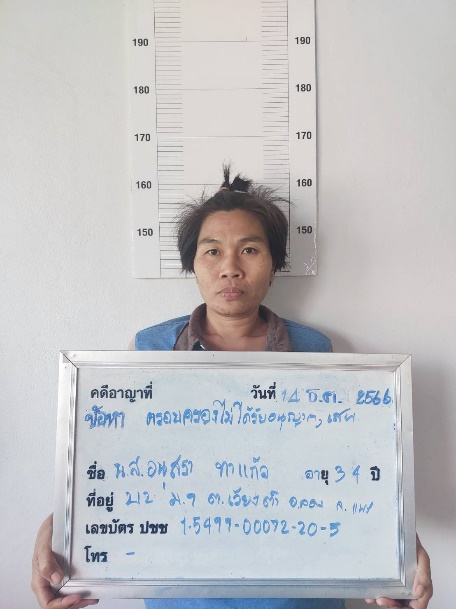 190 190
180 180
170 170
160 160
150 150
คดีอาญาที่ วันที่ 14 ธ.ค. 2566
ข้อหา ครอบครองไม่ได้รับอนุญาต, เสพ
ชื่อ น.ส.อนุสรา ทาแก้ว อายุ 34 ปี
ที่อยู่ ม.9 ต.เวียงต้า อ.ลอง จ.แพร่
เลขบัตร ปชช 1-5499-00072-20-5
โทร -